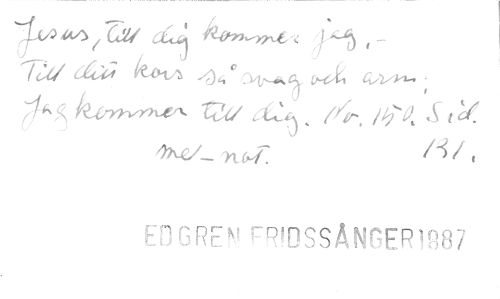 Jesus, till dig kommer jag,-
Till ditt kors så svag och arm;
Jag kommer till dig. No. 150. Sid.
mel-not. 131.
EDGREN FRIDSSÅNGER 1887